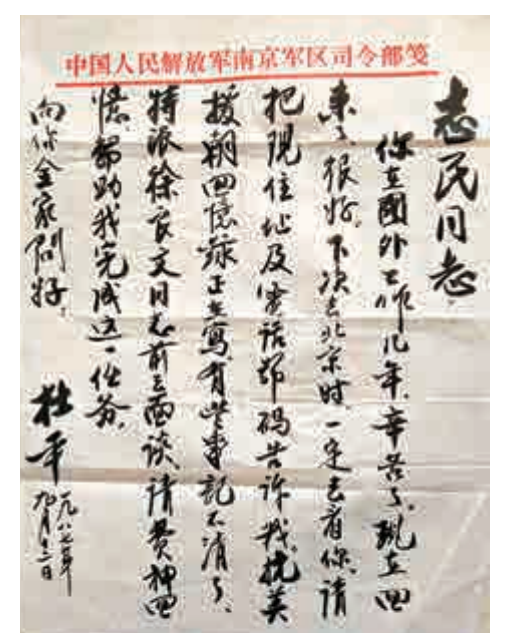 中国人民解放军南京军区司令部笺
志民同志
你在國外工作几年,辛苦了,现在回
来了,很好。下次去北京时,一定去看你,请
把现住址及电话号码告诉我。抗美
援朝回憶録正在写,有些事記不清了,
特派徐良文同志前去面谈,请费神回
憶,帮助我完成这一任务。
向你全家问好。
杜平
一九八七年
九月十二日